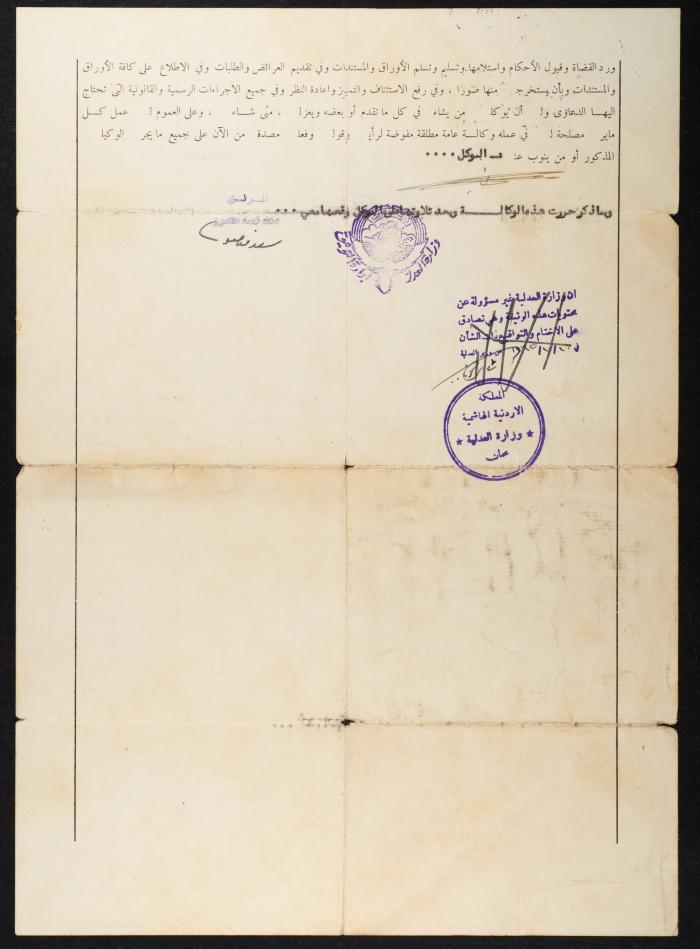 ورد القضاة وقبول الأحكام واستلامها.وتسليم وتسلم الأوراق والمستندات وفي تقديم العرائض والطلبات وفي الاطلاع على كافة الأوراق
والمستندات وبأن يستخرج منها صورا ، وفي رفع الاستئناف والتمييز واعادة النظر وفي جميع الاجراءات الرسمية والقانونية التي تحتاج
اليها الدعاوى ول أن يوكل من يشاء في كل ما تقدم أو بعضه ويعزل ، متى شاء ، وعلى العموم ل عمل كل
ماير مصلحة ل في عمله وكالة عامة مطلقة مفوضة لرأي وقول وفعل مصدقة من الآن على جميع ما يجر الوكيل
المذكور أو من ينوب عن الموكل ....
وبما ذكر حررت هذه الوكالة وبعد تلاوتها على الموكل وقعها معي ...
وزارة العدل
ان وزارة العدلية غير مسؤولة عن
محتويات هذه الوثيقة وهي تصادق
على الاختام والتواقيع ذات الشأن
عن وزير العدلية
المملكة
الاردنية الهاشمية
وزارة العدلية
عمان